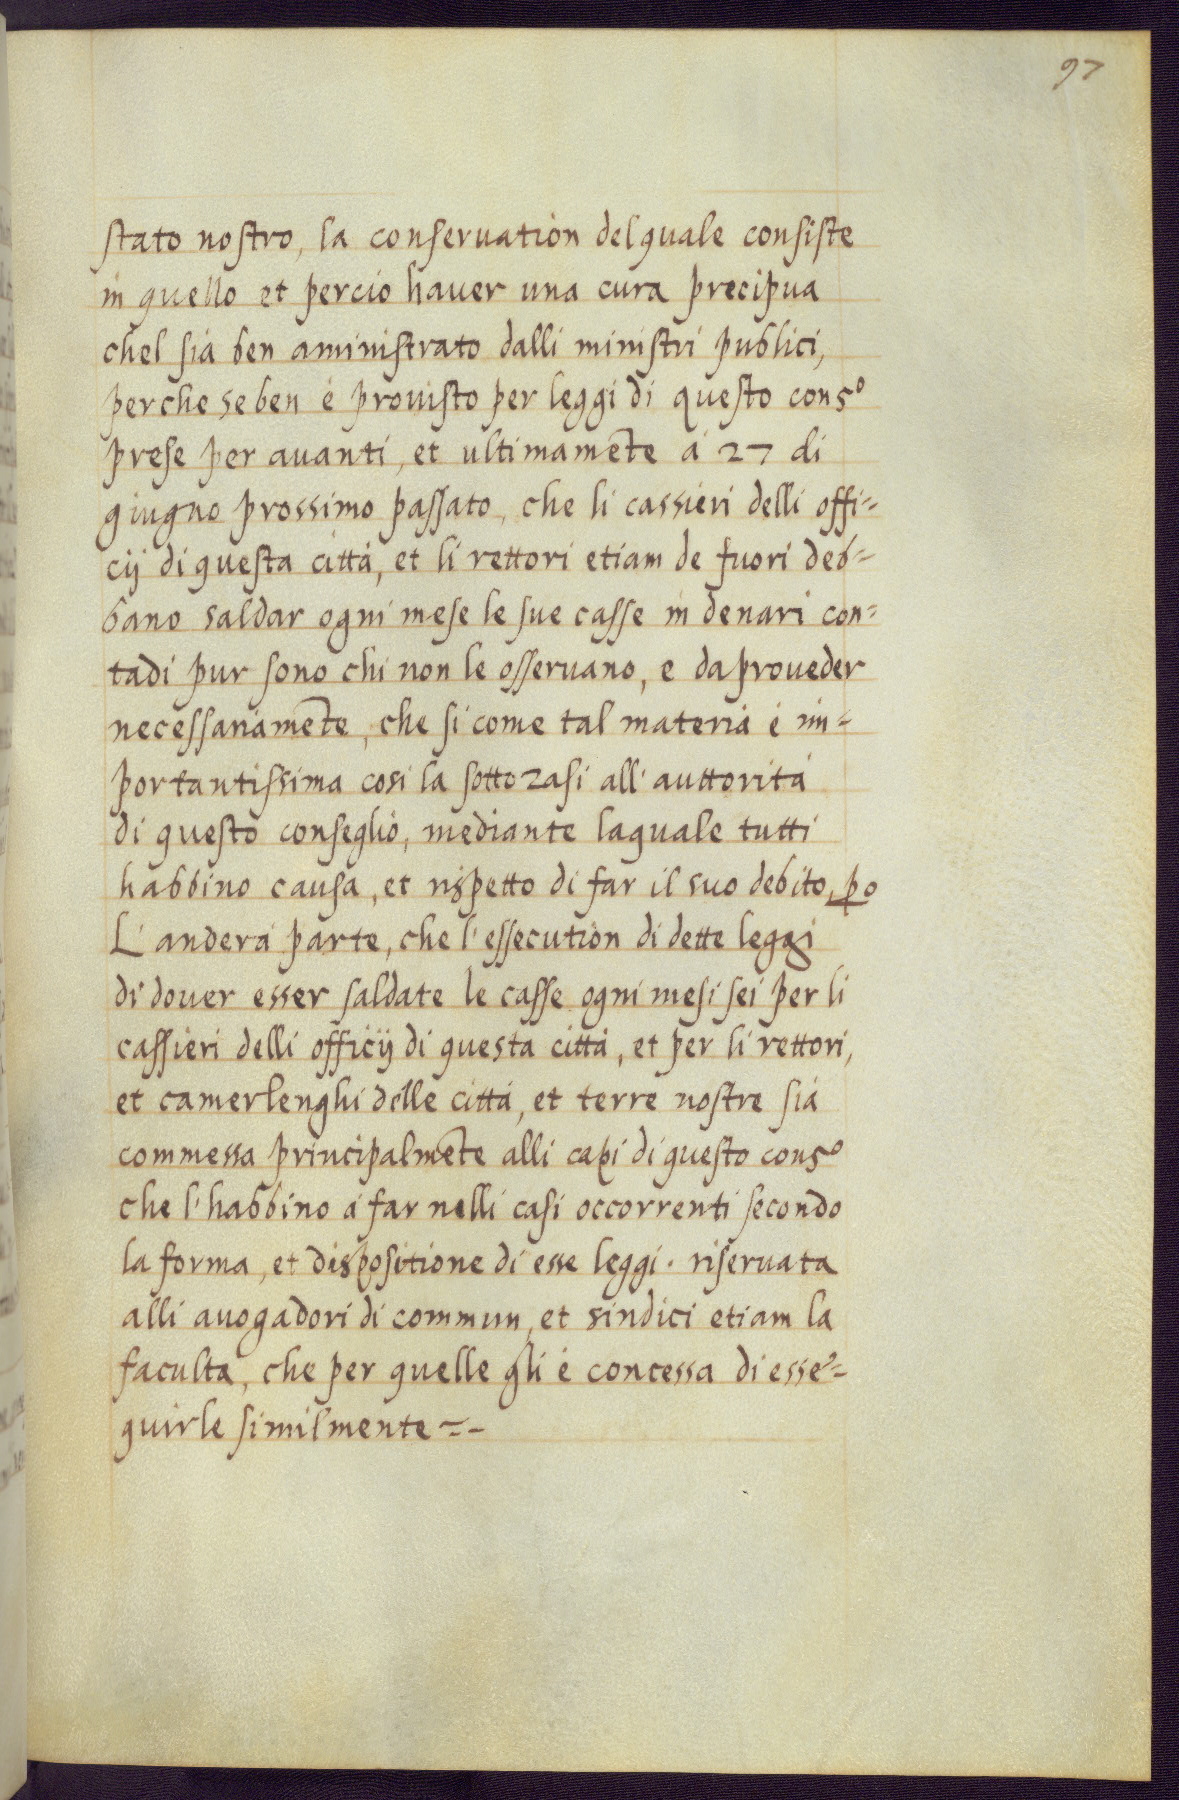 97
stato nostro, la conseruation del quale consiste
in quello et percio hauer una cura precipua
chel sia ben aministrato dalli ministri publici,
perche se ben è prouisto per leggi di questo cons.º
prese per auanti, et ultimamẽte à 27 di
giugno prossimo passato, che li cassieri delli offi=
cij di questa città, et li rettori etiam de fuori deb=
bano saldar ogni mese le sue casse in denari con=
tadi pur sono chi non le osseruano, e da proueder
necessariamẽte, che si come tal materia è im=
portantissima cosi la sottozasi all'auttorità
di questo conseglio, mediante laquale tutti
habbino causa, et rispetto di far il suo debito, ꝑo
L'anderà parte, che l'essecution di dette leggi
di douer esser saldate le casse ogni mesi sei per li
cassieri delli officij di questa città, et per li rettori,
et camerlenghi delle città, et terre nostre sia
commessa principalmẽte alli capi di questo cons.º
che l'habbino à far nelli casi occorrenti secondo
la forma, et dispositione di esse leggi. riseruata
alli auogadori di commun, et sindici etiam la
faculta, che per quelle gli è concessa di esse=
guirle similmente=-